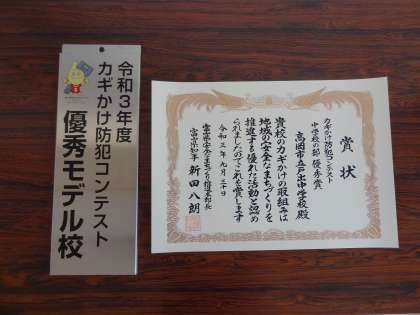 令和3年度
カギかけ防犯コンテスト
優秀モデル校
賞状
カギかけ防犯コンテスト
中学校の部 優秀賞
高岡市立戸出中学校殿
貴校のカギかけの取組みは
地域の安全なまちづくりを
推進する優れた活動と認め
られましたのでこれを賞します
令和三年九月三十日
富山県安全なまちづくり推進本部長
富山県知事 新田八朗